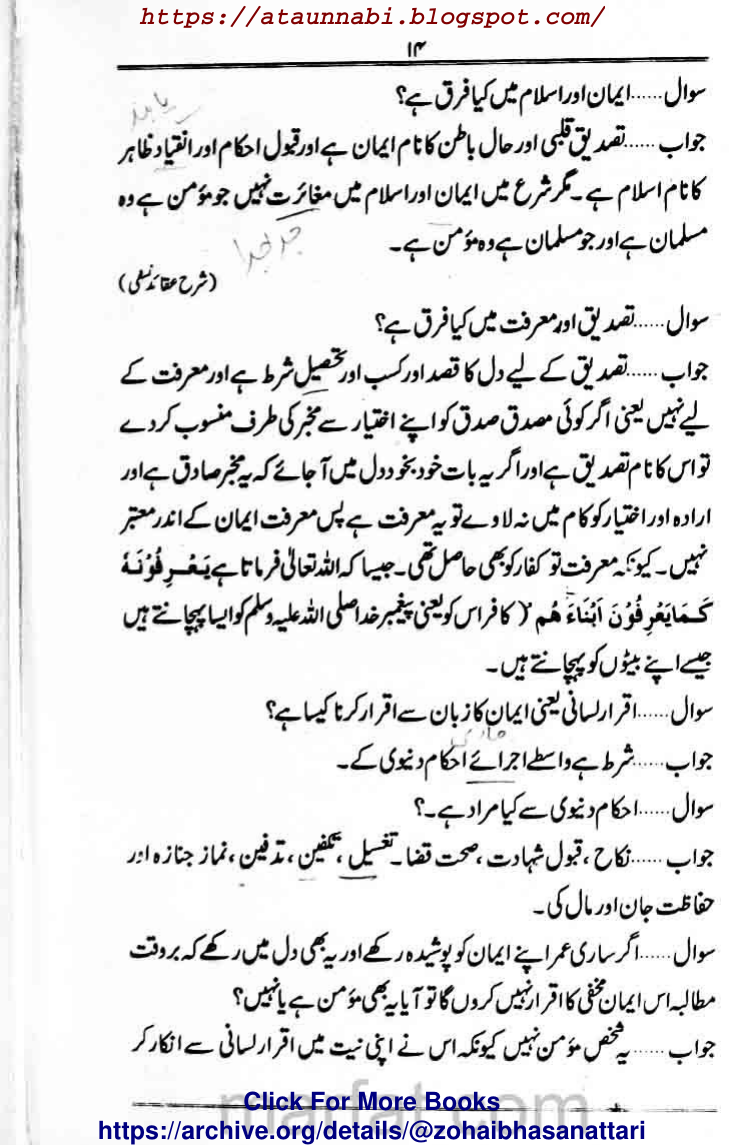 https://ataunnabi.blogspot.com/
۱۴
سوال......ایمان اور اسلام میں کیا فرق ہے؟
جواب......تصدیق قلبی اور حال باطن کا نام ایمان ہے اور قبول احکام اور انقیاد ظاہر
کا نام اسلام ہے۔ مگر شرع میں ایمان اور اسلام میں مغائرت نہیں جو مؤمن ہے وہ
مسلمان ہے اور جو مسلمان ہے وہ مؤمن ہے۔
(شرح عقائد نسفی)
سوال......تصدیق اور معرفت میں کیا فرق ہے؟
جواب......تصدیق کے لیے دل کا قصد اور کسب اور تحصیل شرط ہے اور معرفت کے
لیے نہیں یعنی اگر کوئی مصدق صدق کو اپنے اختیار سے مخبر کی طرف منسوب کردے
تو اس کا نام تصدیق ہے اور اگر یہ بات خود بخود دل میں آجائے کہ یہ مخبر صادق ہے اور
ارادہ اور اختیار کو کام میں نہ لاوے تو یہ معرفت ہے پس معرفت ایمان کے اندر معتبر
نہیں۔ کیونکہ معرفت تو کفار کو بھی حاصل تھی۔ جیسا کہ اللہ تعالیٰ فرماتا ہے یَعْرِفُوْنَهٗ
کَمَا یَعْرِفُوْنَ اَبْنَاءَ هُم ْ( کافر اس کو یعنی پیغمبر خدا صلی اللہ علیہ وسلم کو ایسا پہچانتے ہیں
جیسے اپنے بیٹوں کو پہچانتے ہیں۔
سوال......اقرار لسانی یعنی ایمان کا زبان سے اقرار کرنا کیسا ہے؟
جواب......شرط ہے واسطے اجرائے احکام دنیوی کے۔
سوال......احکام دنیوی سے کیا مراد ہے۔؟
جواب......نکاح، قبول شہادت، صحت قضا۔ تغسیل، تکفین، تدفین، نماز جنازہ اور
حفاظت جان اور مال کی۔
سوال......اگر ساری عمر اپنے ایمان کو پوشیدہ رکھے اور یہ بھی دل میں رکھے کہ بروقت
مطالبہ اس ایمان مخفی کا اقرار نہیں کروں گا تو آیا یہ بھی مؤمن ہے یا نہیں؟
جواب......یہ شخص مؤمن نہیں کیونکہ اس نے اپنی نیت میں اقرار لسانی سے انکار کر
marfat.com
Click For More Books
https://archive.org/details/@zohaibhasanattari